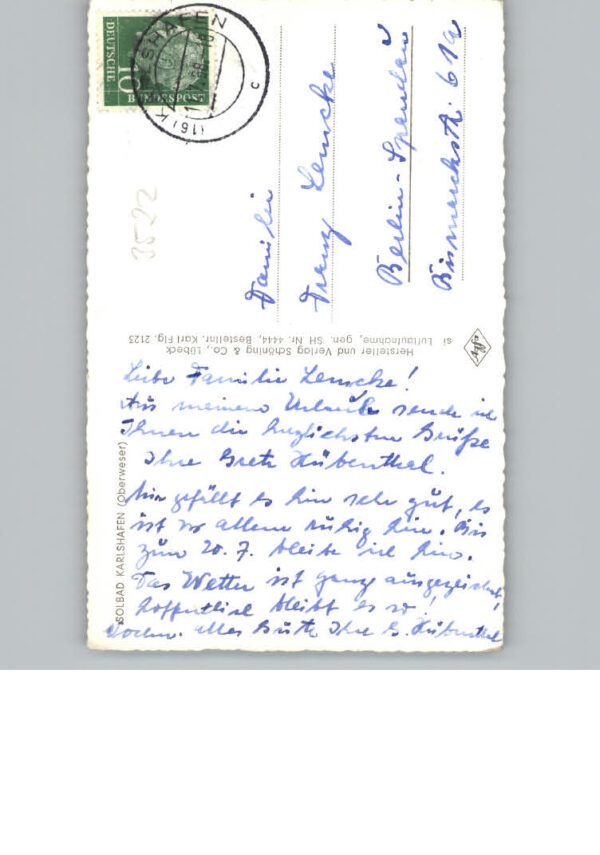 DEUTSCHE
10
BUNDESPOST
SHAFEN
(16) K
c
3522
Familie
Franz Lemcke
Berlin-Spandau
Bismarckstr. 61a
Hersteller und Verlag Schöning & Co., Lübeck
si Luftaufnahme, gen. SH Nr. 4444, Bestellnr. Karl Flg. 2123
SOLBAD KARLSHAFEN (Oberweser)
Liebe Familie Lemcke!
Aus meinem Urlaub sende ich
Ihnen die herzlichsten Grüße
Ihre Grete Hübenthal.
Mir gefällt es hier sehr gut, es
ist vor allem ruhig hier. Bis
zum 20. 7. bleibe ich hier.
Das Wetter ist ganz ausgezeichnet,
hoffentlich bleibt es so!
alles Gute Ihre G. Hübenthal